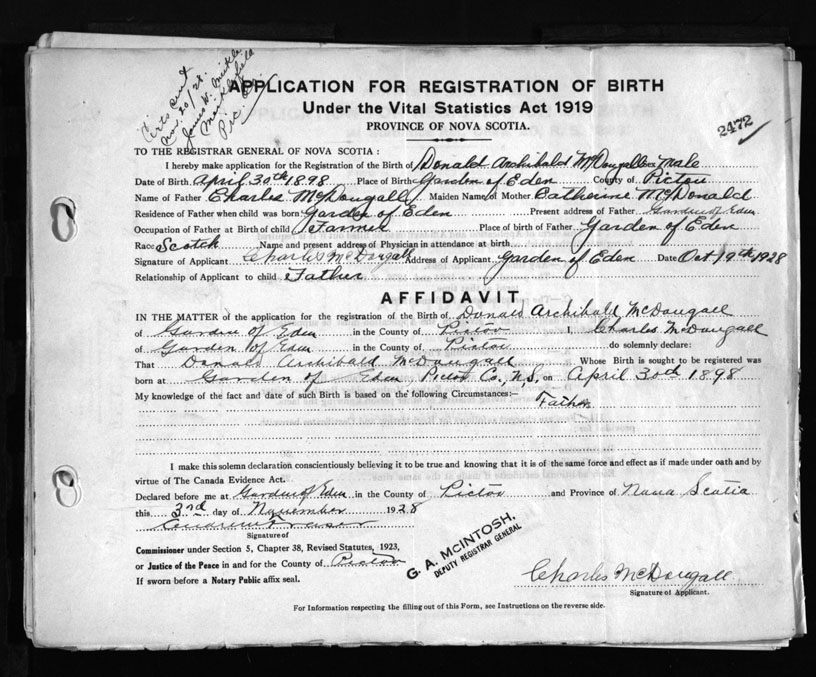 Certs sent
Nov. 20/28.
James W.
Pic. Co.
APPLICATION FOR REGISTRATION OF BIRTH
Under the Vital Statistics Act 1919
PROVINCE OF NOVA SCOTIA.
2472
TO THE REGISTRAR GENERAL OF NOVA SCOTIA :
I hereby make application for the Registration of the Birth of Donald Archibald McDougall Sex Male
Date of Birth April 30th 1898 Place of Birth Garden of Eden County of Pictou
Name of Father Charles McDougall Maiden Name of Mother Catherine McDonald
Residence of Father when child was born Garden of Eden Present address of Father Garden of Eden
Occupation of Father at Birth of child Farmer Place of birth of Father Garden of Eden
Race Scotch Name and present address of Physician in attendance at birth
Signature of Applicant Charles McDougall Address of Applicant Garden of Eden Date Oct 19th 1928
Relationship of Applicant to child Father
AFFIDAVIT
IN THE MATTER of the application for the registration of the Birth of Donald Archibald McDougall
of Garden of Eden in the County of Pictou I, Charles McDougall
of Garden of Eden in the County of Pictou do solemnly declare:
That Donald Archibald McDougall Whose Birth is sought to be registered was
born at Garden of Eden Pictou Co., N.S. on April 30th 1898
My knowledge of the fact and date of such Birth is based on the following Circumstances:— Father
I make this solemn declaration conscientiously believing it to be true and knowing that it is of the same force and effect as if made under oath and by
virtue of The Canada Evidence Act.
Declared before me at Garden of Eden in the County of Pictou and Province of Nova Scotia
this 3rd day of November 1928
Signature of
Commissioner under Section 5, Chapter 38, Revised Statutes, 1923,
or Justice of the Peace in and for the County of Pictou
If sworn before a Notary Public affix seal.
G. A. McINTOSH,
DEPUTY REGISTRAR GENERAL
Charles McDougall
Signature of Applicant.
For Information respecting the filling out of this Form, see Instructions on the reverse side.